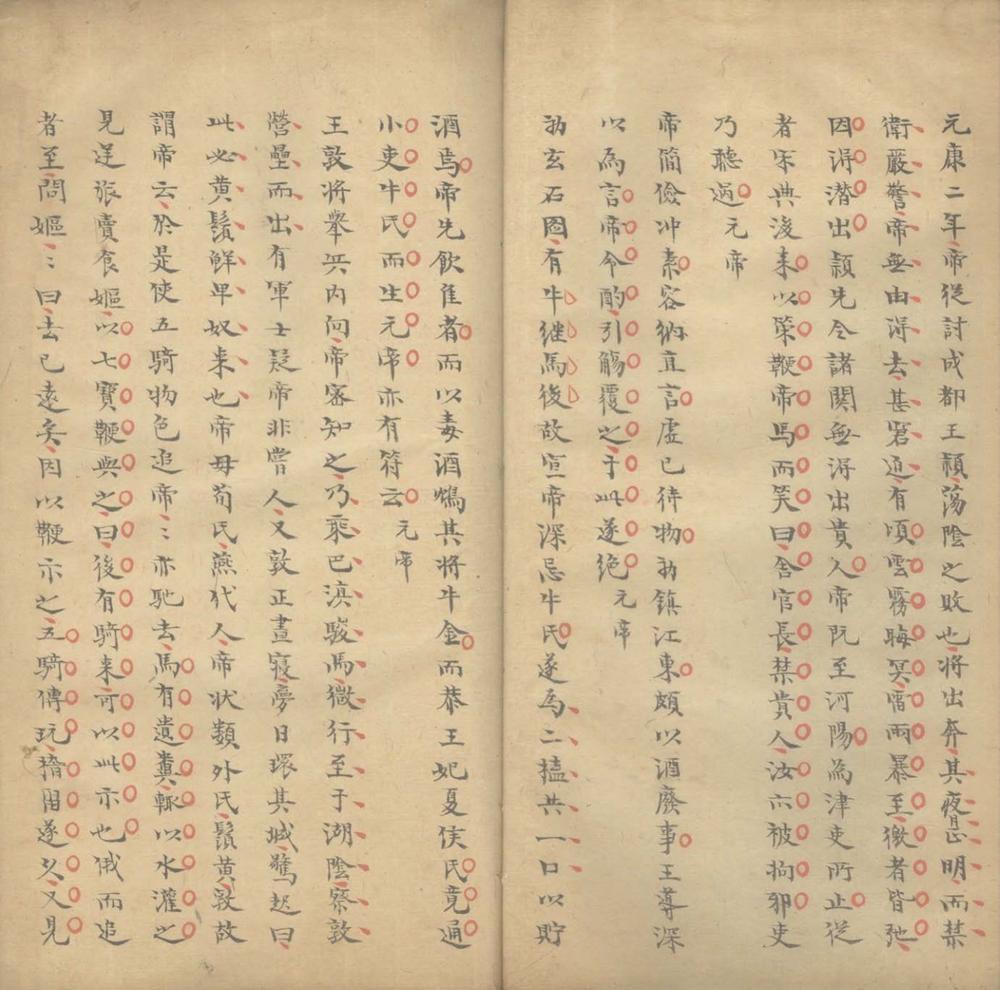 元康二年帝從討成都王穎蕩陰之敗也將出奔其夜月正明而禁
衛嚴警帝無由得去甚窘迫有頃雲霧晦冥雷雨暴至徼者皆弛
因得潛出穎先令諸関無得出貴人帝既至河陽為津吏所止從
者宋典後来以策鞭帝馬而笑曰舍官長禁貴人汝亦被拘邪吏
乃聽過元帝
帝簡儉冲素容納直言虛己待物初鎮江東頗以酒廢事王導深
以為言帝令酌引觴覆之于此遂絕元帝
初玄石圖有牛继馬後故宣帝深忌牛氏遂為二榼共一口以貯
酒焉帝先飲佳者而以毒酒鴆其将牛金而恭王妃夏侯氏竟通
小吏牛氏而生元帝亦有符云元帝
王敦将舉兵內向帝密知之乃乘巴滇駿馬微行至于湖陰察敦
營壘而出有軍士疑帝非嘗人又敦正晝寢夢日環其城驚起曰
此必黄鬚鮮卑奴来也帝母荀氏燕代人帝状類外氏鬚黄敦故
謂帝云於是使五騎物色追帝〻亦馳去馬有遺糞輒以水灌之
見逆旅賣食嫗以七寶鞭與之曰後有騎来可以此示也俄而追
者至問嫗〻曰去已遠矣因以鞭示之五騎傳玩稽留遂久又見